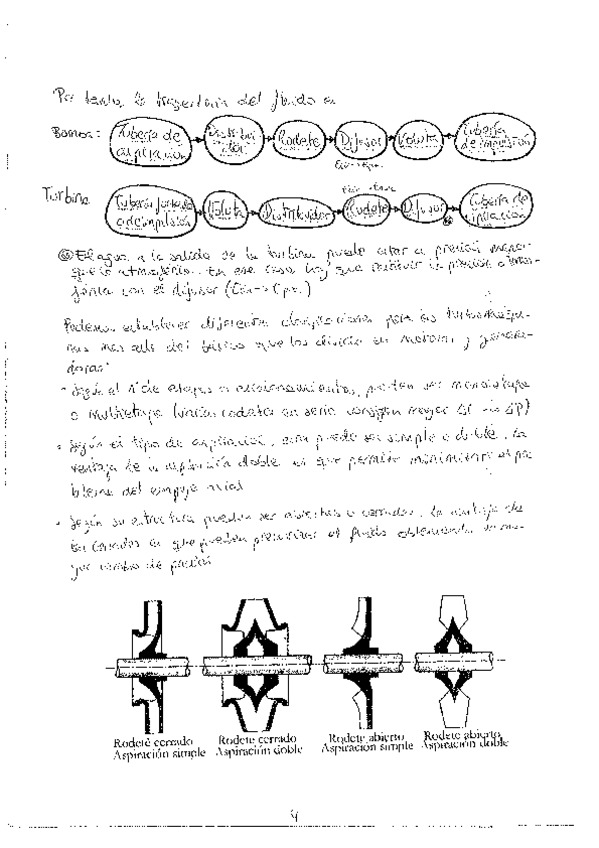 Por tanto, la trayectoria del fluido es
Bomba: Tubería de aspiración → Distribuidor → Rodete → Difusor → Voluta → Tubería de impulsión
Turbina Tubería forzada o de impulsión → Voluta → Distribuidor → Rodete → Difusor → Tubería de aspiración
El agua a la salida de la turbina puede estar a presión menor
que la atmosférica. En ese caso hay que restituir la presión atmos-
férica con el difusor
Podemos establecer diferentes clasificaciones para las turbomáqui-
nas más allá del básico que las divide en motoras y genera-
doras:
· Según el nº de etapas o escalonamientos, pueden ser monoetapa
o multietapa (varios rodetes en serie consiguen mayor
· Según el tipo de aspiración, esta puede ser simple o doble. La
ventaja de la aspiración doble es que permite minimizar el pro-
blema del empuje axial
· Según su estructura pueden ser abiertos o cerrados. La ventaja de
los cerrados es que pueden presurizar el fluido obteniendo un ma-
yor cambio de presión
Rodete cerrado
Aspiración simple
Rodete cerrado
Aspiración doble
Rodete abierto
Aspiración simple
Rodete abierto
Aspiración doble
4